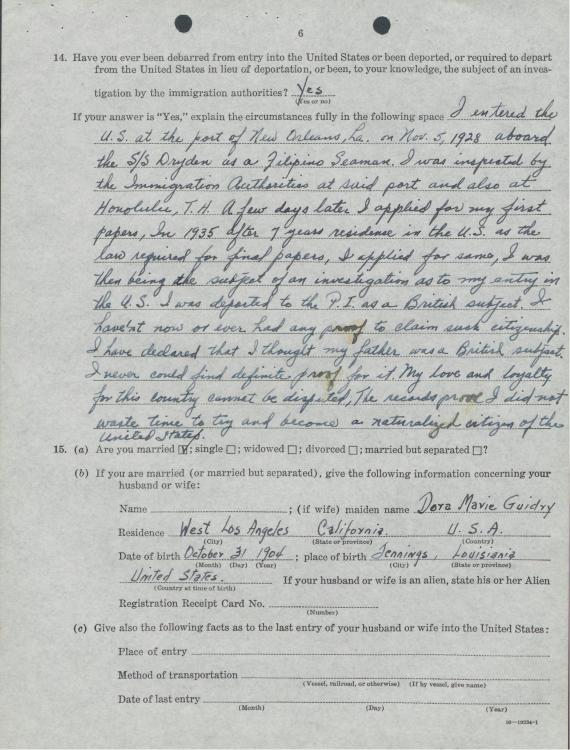 6
14. Have you ever been debarred from entry into the United States or been deported, or required to depart
from the United States in lieu of deportation, or been, to your knowledge, the subject of an inves-
tigation by the immigration authorities? Yes
(Yes or no)
If your answer is "Yes," explain the circumstances fully in the following space I entered the
U.S. at the port of New Orleans, La. on Nov. 5, 1928 aboard
the S/S Dryden as a Filipino Seaman. I was inspected by
the Immigration Authorities at said port and also at
Honolulu, T.H. A few days later I applied for my first
papers, In 1935 after 7 years residence in the U.S. as the
law required for final papers, I applied for same, I was
then being the subject of an investigation as to my entry in
the U.S. I was deported to the P.I. as a British subject, I
haven't now or ever had any proof to claim such citizenship.
I have declared that I thought my father was a British subject.
I never could find definite proof for it. My love and loyalty
for this country cannot be disputed, The records prove I did not
waste time to try and become a naturalized citizen of the
United States.
15. (a) Are you married ☑; single ☐; widowed ☐; divorced ☐; married but separated ☐?
(b) If you are married (or married but separated), give the following information concerning your
husband or wife:
Name ; (if wife) maiden name Dora Marie Guidry
Residence West Los Angeles California U.S.A.
(City) (State or province) (Country)
Date of birth October 31 1904; place of birth Jennings, Louisiania
(Month) (Day) (Year) (City) (State or province)
United States. If your husband or wife is an alien, state his or her Alien
(Country at time of birth)
Registration Receipt Card No.
(Number)
(c) Give also the following facts as to the last entry of your husband or wife into the United States:
Place of entry
Method of transportation
(Vessel, railroad, or otherwise) (If by vessel, give name)
Date of last entry
(Month) (Day) (Year)
16—19334-1